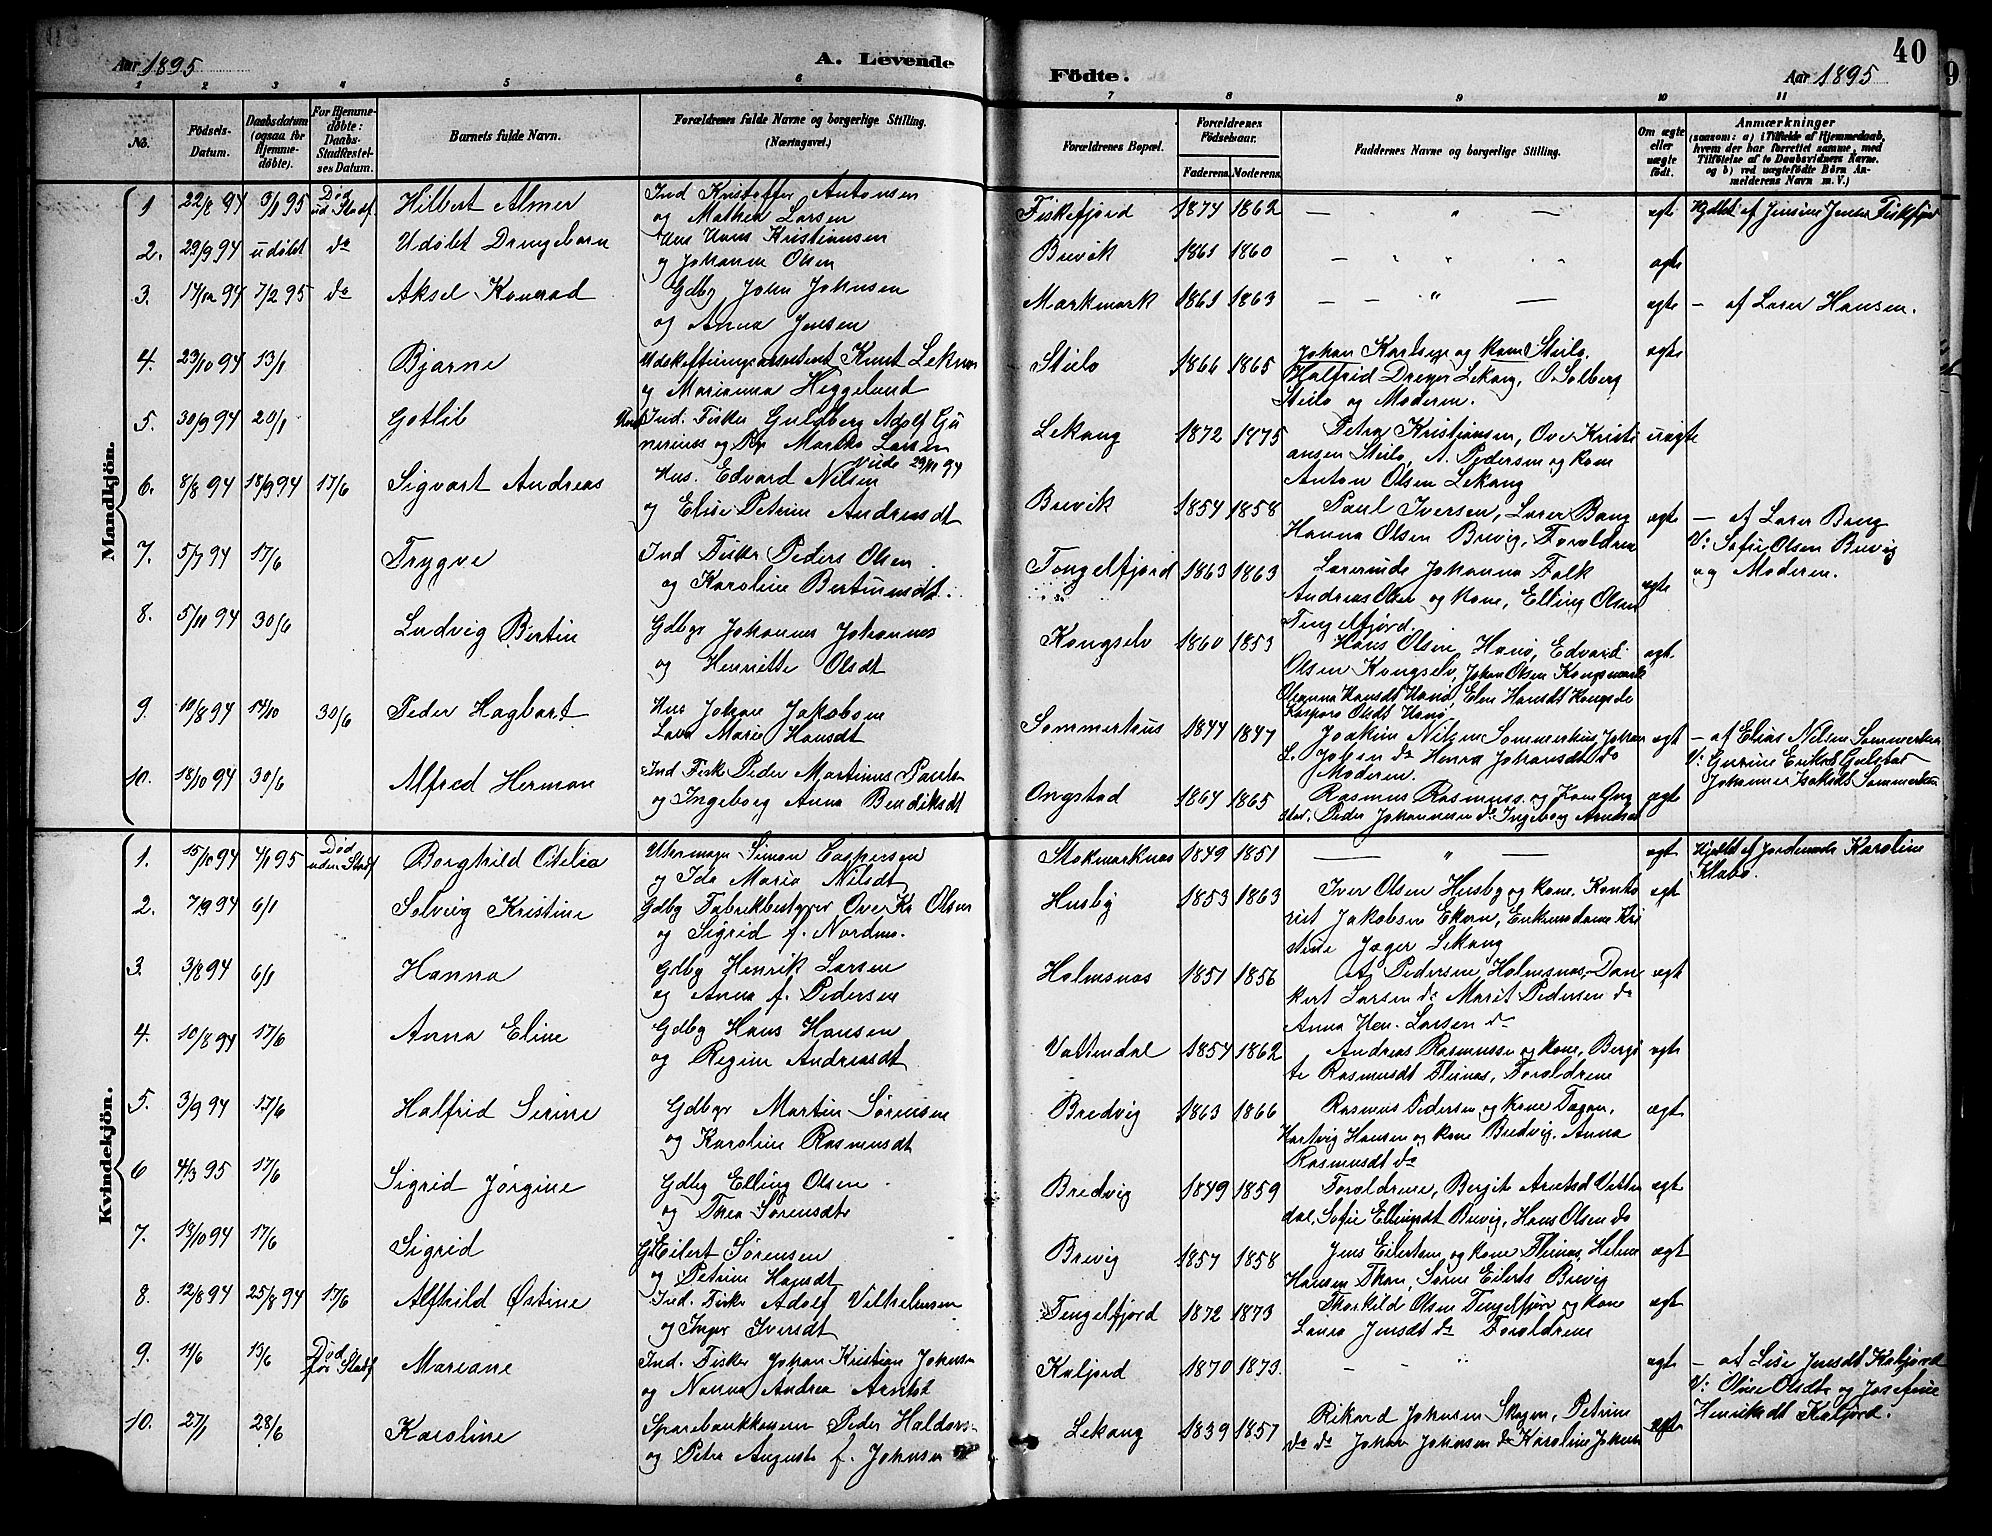 Aar 1895
A. Levende
Födte.
Aar 1895
40
9
1 2 3 4 5 6 7 8 9 10 11
No.
Födsels-Datum.
Daabsdatum (ogsaa for Hjemmedöbte).
For Hjemmedöbte: Daabs-Stadfæstelses Datum.
Barnets fulde Navn.
Forældrenes fulde Navne og borgerlige Stilling. (Næringsvei.)
Forældrenes Bopæl.
Forældrenes Födselsaar.
Faderens. Moderens.
Faddernes Navne og borgerlige Stilling.
Om ægte eller uægte födt.
Anmærkninger
(saasom: a) i Tilfælde af Hjemmedaab, hvem der har forrettet samme, med Tilföielse af to Daabsvidners Navne. og b) ved uægtefödte Börn Anmelderens Navn m. V.)
Mandkjön.
1 22/8 94 9/1 95 Död ud. Stadf. Hilbert Almer
Ind Kristoffer Antonsen
og Mathea Larsen
Fiskefjord 1874 1862 — " — ægte Hjdöbt af Jensine Jensen Fiskfjor
2. 29/9 94 udöbt do Udöbt Drengebarn
Hus Hans Kristiansen
og Johanna Olsen
Brevik 1861 1860 — " ægte
3. 17/12 94 7/2 95 do Aksel Konrad
Gdbg John Johnsen
og Anna Jensen
Markmark 1861 1863 — — " — ægte — af Lærer Hansen.
4. 23/10 94 13/1 Bjarne
Udskiftningsassistent Knut Leknes
og Marianna Heggelund
Steilo 1866 1865 Johan Karlsen og kone Steilo.
Halfrid Dreyer Lekang, O. Solberg
Steilo og Moderen.
ægte
5. 30/9 94 20/1 Gotlib
Ind. Fisker Guldberg Adolf Gu
nerius og Pige Martha Larsen
Viede 29/11 94
Lekang 1872 1875 Petra Kristiansen, Ove Kristi
ansen Steilo, A. Pedersen og kone
Anton Olsen Lekang
uægte
6. 8/8 94 18/9 94 17/6 Sigvart Andreas
Hus. Edvard Nilsen
og Elise Petrine Andreasdt
Brevik 1854 1858 Paul Iversen, Lærer Bang
Hanna Olsen Brevig, Foreldrene
ægte — af Lærer Bang
V: Sofie Olsen Brevig
og Moderen.
7. 5/7 94 17/6 Trygve
Ind Fisker Peder Olsen
og Karoline Bertinusdt.
Tengelfjord 1863 1863 Lærerinde Johanna Falk
Andreas Olsen og kone, Elling Olsen
Tengelfjord.
ægte
8. 5/11 94 30/6 Ludvig Bertin
Gdbgr Johannes Johannes
og Henriette Olsdt
Kongselv 1860 1853 Hans Olsen Hanø, Edvard
Olsen Kongselv, Johan Olsen Kongsmark
Oleanna Hansdt Hanø, Elen Hansdt Kongselv
Kaspara Olsdt Hanø
ægt.
9. 10/8 94 14/10 30/6 Peder Hagbart
Hus Johan Jakobsen
Lava Marie Hansdt
Sommerhus 1844 1847 Joakim Nilsen Sommerhus, Johan
L. Johsen do Henra Johansdt do
Moderen.
ægt — af Elias Nilsen Sommerhus
V: Gurine Eriksdt Gulstad
Johanna Isaksdt Sommerhus
10. 18/10 94 30/6 Alfred Herman
Ind Fisk Peder Martinus Pauls
og Ingeborg Anna Bendiksdt
Ongstad 1864 1865 Rasmus Rasmuss. og kone Ong
stad. Peder Johannesen do Ingeborg Arntsdt
ægte
Kvindekjön.
1. 15/10 94 4/1 95 Död uden Stadf Borghild Otelia
Uhrmager Simon Caspersen
og Ida Maria Nilsdt
Stokmarknes 1849 1851 — " — ægt Hjdöbt af Jordemoder Karoline
Klabo.
2. 7/9 94 6/1 Solveig Kristine
Gdbg Fabrikbestyrer Ove Kr Olsen
og Sigrid f. Nordnes.
Husby 1853 1863 Iver Olsen Husby og kone, Konto
rist Jakobsen Ekern, Enkemadame Kri
stine Jæger Lekang
ægt
3. 3/8 94 6/1 Hanna
Gdbg Henrik Larsen
og Anna f. Pedersen
Holmsnes 1851 1856 A. Pedersen Holmsnes, Dan
kert Larsen do Marit Pedersen do
Anna Hen. Larsen do
ægt
4. 10/8 94 17/6 Anna Eline
Gdbg Hans Hansen
og Regine Andreasdt
Vattendal 1854 1862 Andreas Rasmussen og kone, Bergi
te Rasmusdt Flesnes, Foreldrene
ægt
5. 3/9 94 17/6 Halfrid Serine
Gdbgr Martin Sørensen
og Karoline Rasmusdt
Bredvig 1863 1866 Rasmus Pedersen og kone Dagan,
Hartvig Hansen og kone Bredvig, Anna
Rasmusdt do
ægt
6 4/3 95 17/6 Sigrid Jørgine
Gdbg Elling Olsen
og Thea Sørensdt
Bredvig 1849 1859 Foreldrene, Bergit Arntsd Vatten
dal, Sofie Ellingsdt Brevig, Hans Olsen do
ægt
7. 19/10 94 17/6 Sigrid
G Eilert Sørensen
og Petrine Hansdt
Brevig 1857 1858 Jens Eilertsen og kone Flesnes, Helene
Hansen Than, Sørine Eilerts Brevig
ægt
8. 12/8 94 25/8 94 17/6 Alfhild Østine
Ind. Fisker Adolf Vilhelmsen
og Inger Iversdt
Tengelfjord 1872 1873 Thorkild Olsen Tengelfjor og kone
Laura Jensdt do Foreldrene
ægt
9. 11/6 13/6 Död før Stadf Mariane
Ind. Fisker Johan Kristian Johnsen
og Nanna Andrea Arntsdt
Kaljord 1870 1873. — — " ægte — af Lise Jensdt Kaljord
V: Oline Olsdt og Josefine
Henriksdt Kaljord.
10. 27/1 28/6 Karoline
Sparebankkasserer Peder Haldors
og Petra Augusta f. Johnsen
Lekang 1839 1857 Rikard Johnsen Skogen, Petrine
do do Johan Johnsen do Karoline Johnsen
ægte